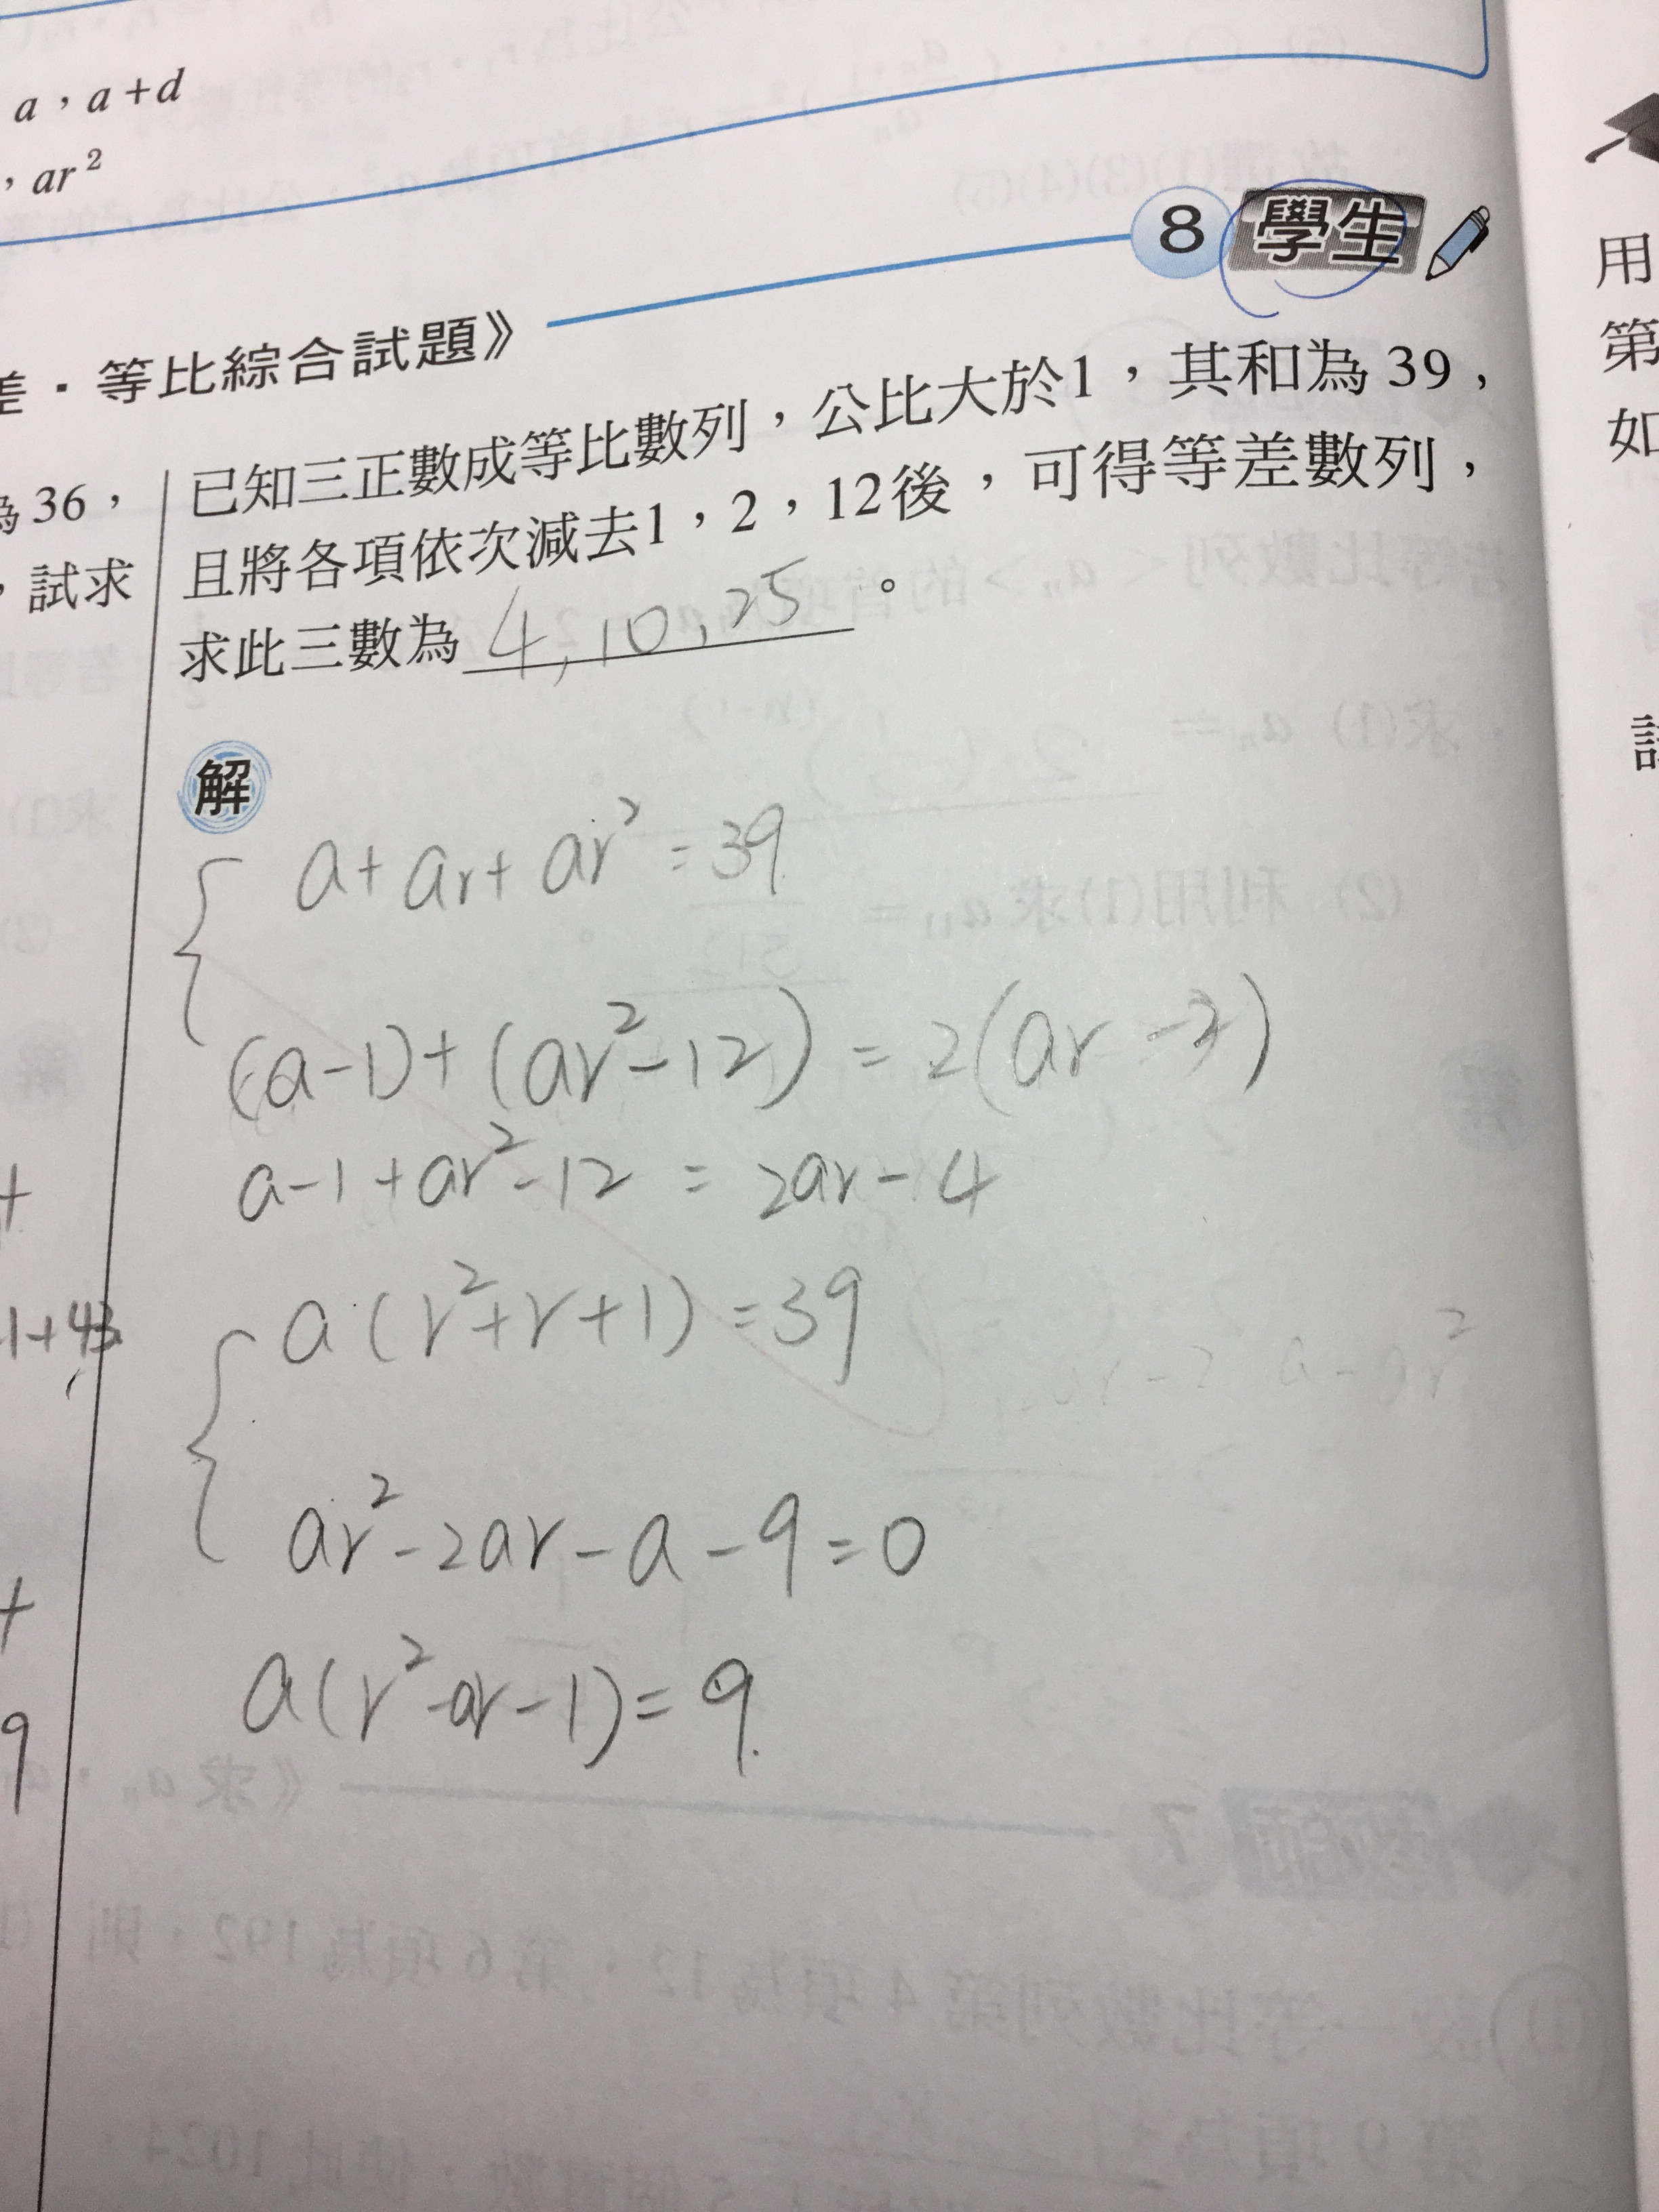 a，a+d
，ar²
8 學生
差·等比綜合試題》
為36，
，試求
已知三正數成等比數列，公比大於1，其和為39，
且將各項依次減去1，2，12後，可得等差數列，
求此三數為 4,10,25 。
解
a+ar+ar²=39
(a-1)+(ar²-12)=2(ar-2)
a-1+ar²-12=2ar-4
a(r²+r+1)=39
ar²-2ar-a-9=0
a(r²-ar-1)=9
+
-1+43
+
9
用
第
如